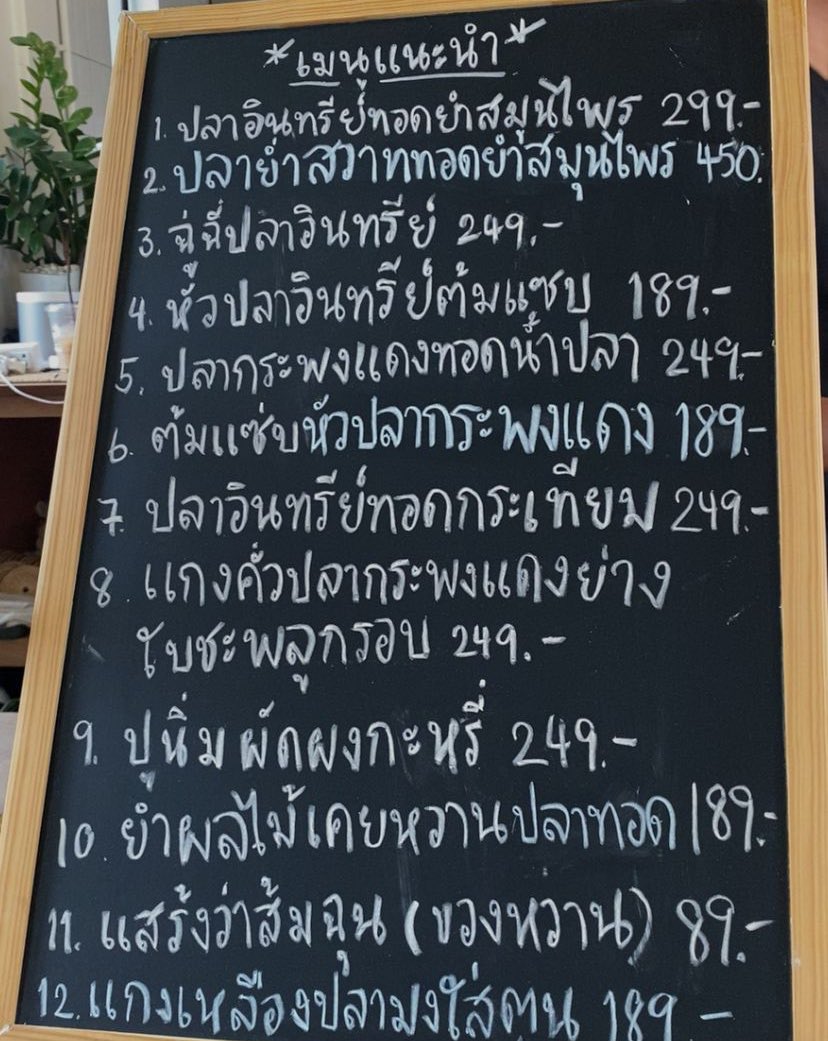 *เมนูแนะนำ*
1. ปลาอินทรีย์ทอดยำสมุนไพร 299.-
2. ปลาย่ำสวาททอดยำสมุนไพร 450.
3. ฉู่ฉี่ปลาอินทรีย์ 249.-
4. หัวปลาอินทรีย์ต้มแซบ 189.-
5. ปลากระพงแดงทอดน้ำปลา 249.-
6. ต้มแซ่บหัวปลากระพงแดง 189.-
7. ปลาอินทรีย์ทอดกระเทียม 249.-
8. แกงคั่วปลากระพงแดงย่าง
ใบชะพลูกรอบ 249.-
9. ปูนิ่มผัดผงกะหรี่ 249.-
10. ยำผลไม้เคยหวานปลาทอด 189.-
11. แสร้งว่าส้มฉุน (ของหวาน) 89.-
12. แกงเหลืองปลามงใส่ตูน 189 -